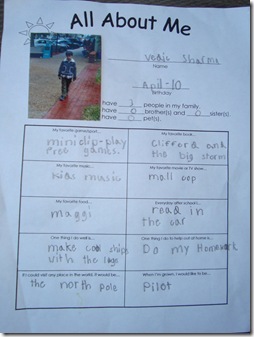 All About Me
vedic sharma
Name
April-10
Birthday
I have 3 people in my family.
I have 0 brother(s) and 0 sister(s).
I have 0 pet(s).
My favorite game/sport...
miniclip-play
free games.
My favorite book...
Clifford and
the big storm
My favorite music...
Kids music
My favorite movie or TV show...
mall cop
My favorite food...
maggi
Everyday after school I...
read in
the car
One thing I do well is...
make cool ships
with the lego
One thing I do to help out at home is...
Do my Homework
If I could visit any place in the world, it would be...
the north pole
When I'm grown, I would like to be...
Pilot